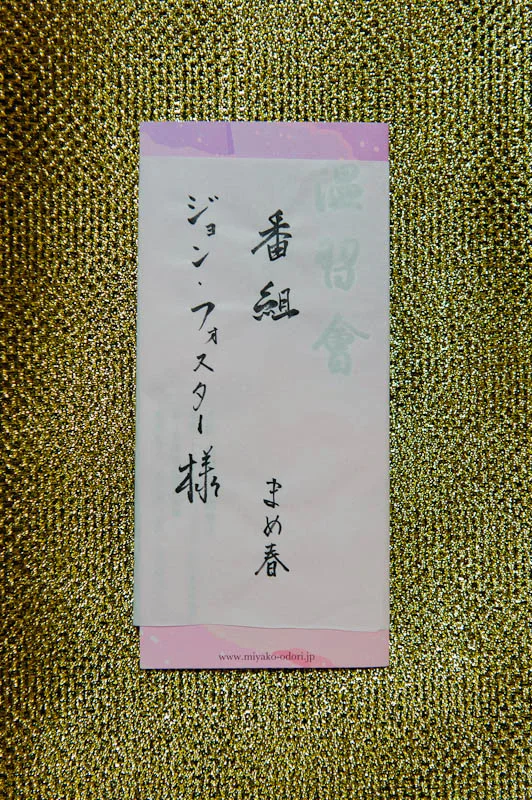 温習會
番組
まめ春
ジョン・フォスター様
www.miyako-odori.jp